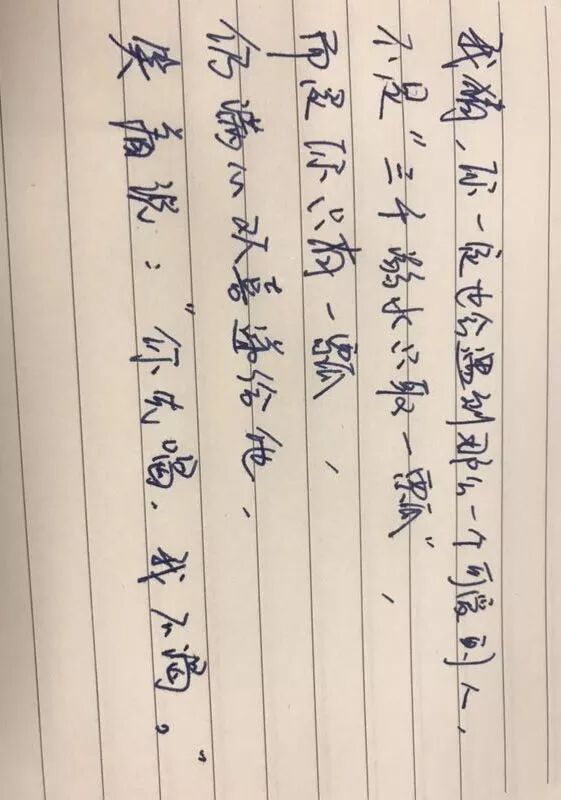 我猜，你一定也会遇到那么一个可爱的人，
不是"三千溺水只取一瓢"，
而是你只有一瓢，
仍满心欢喜递给他，
笑着说："你先喝，我不渴。"